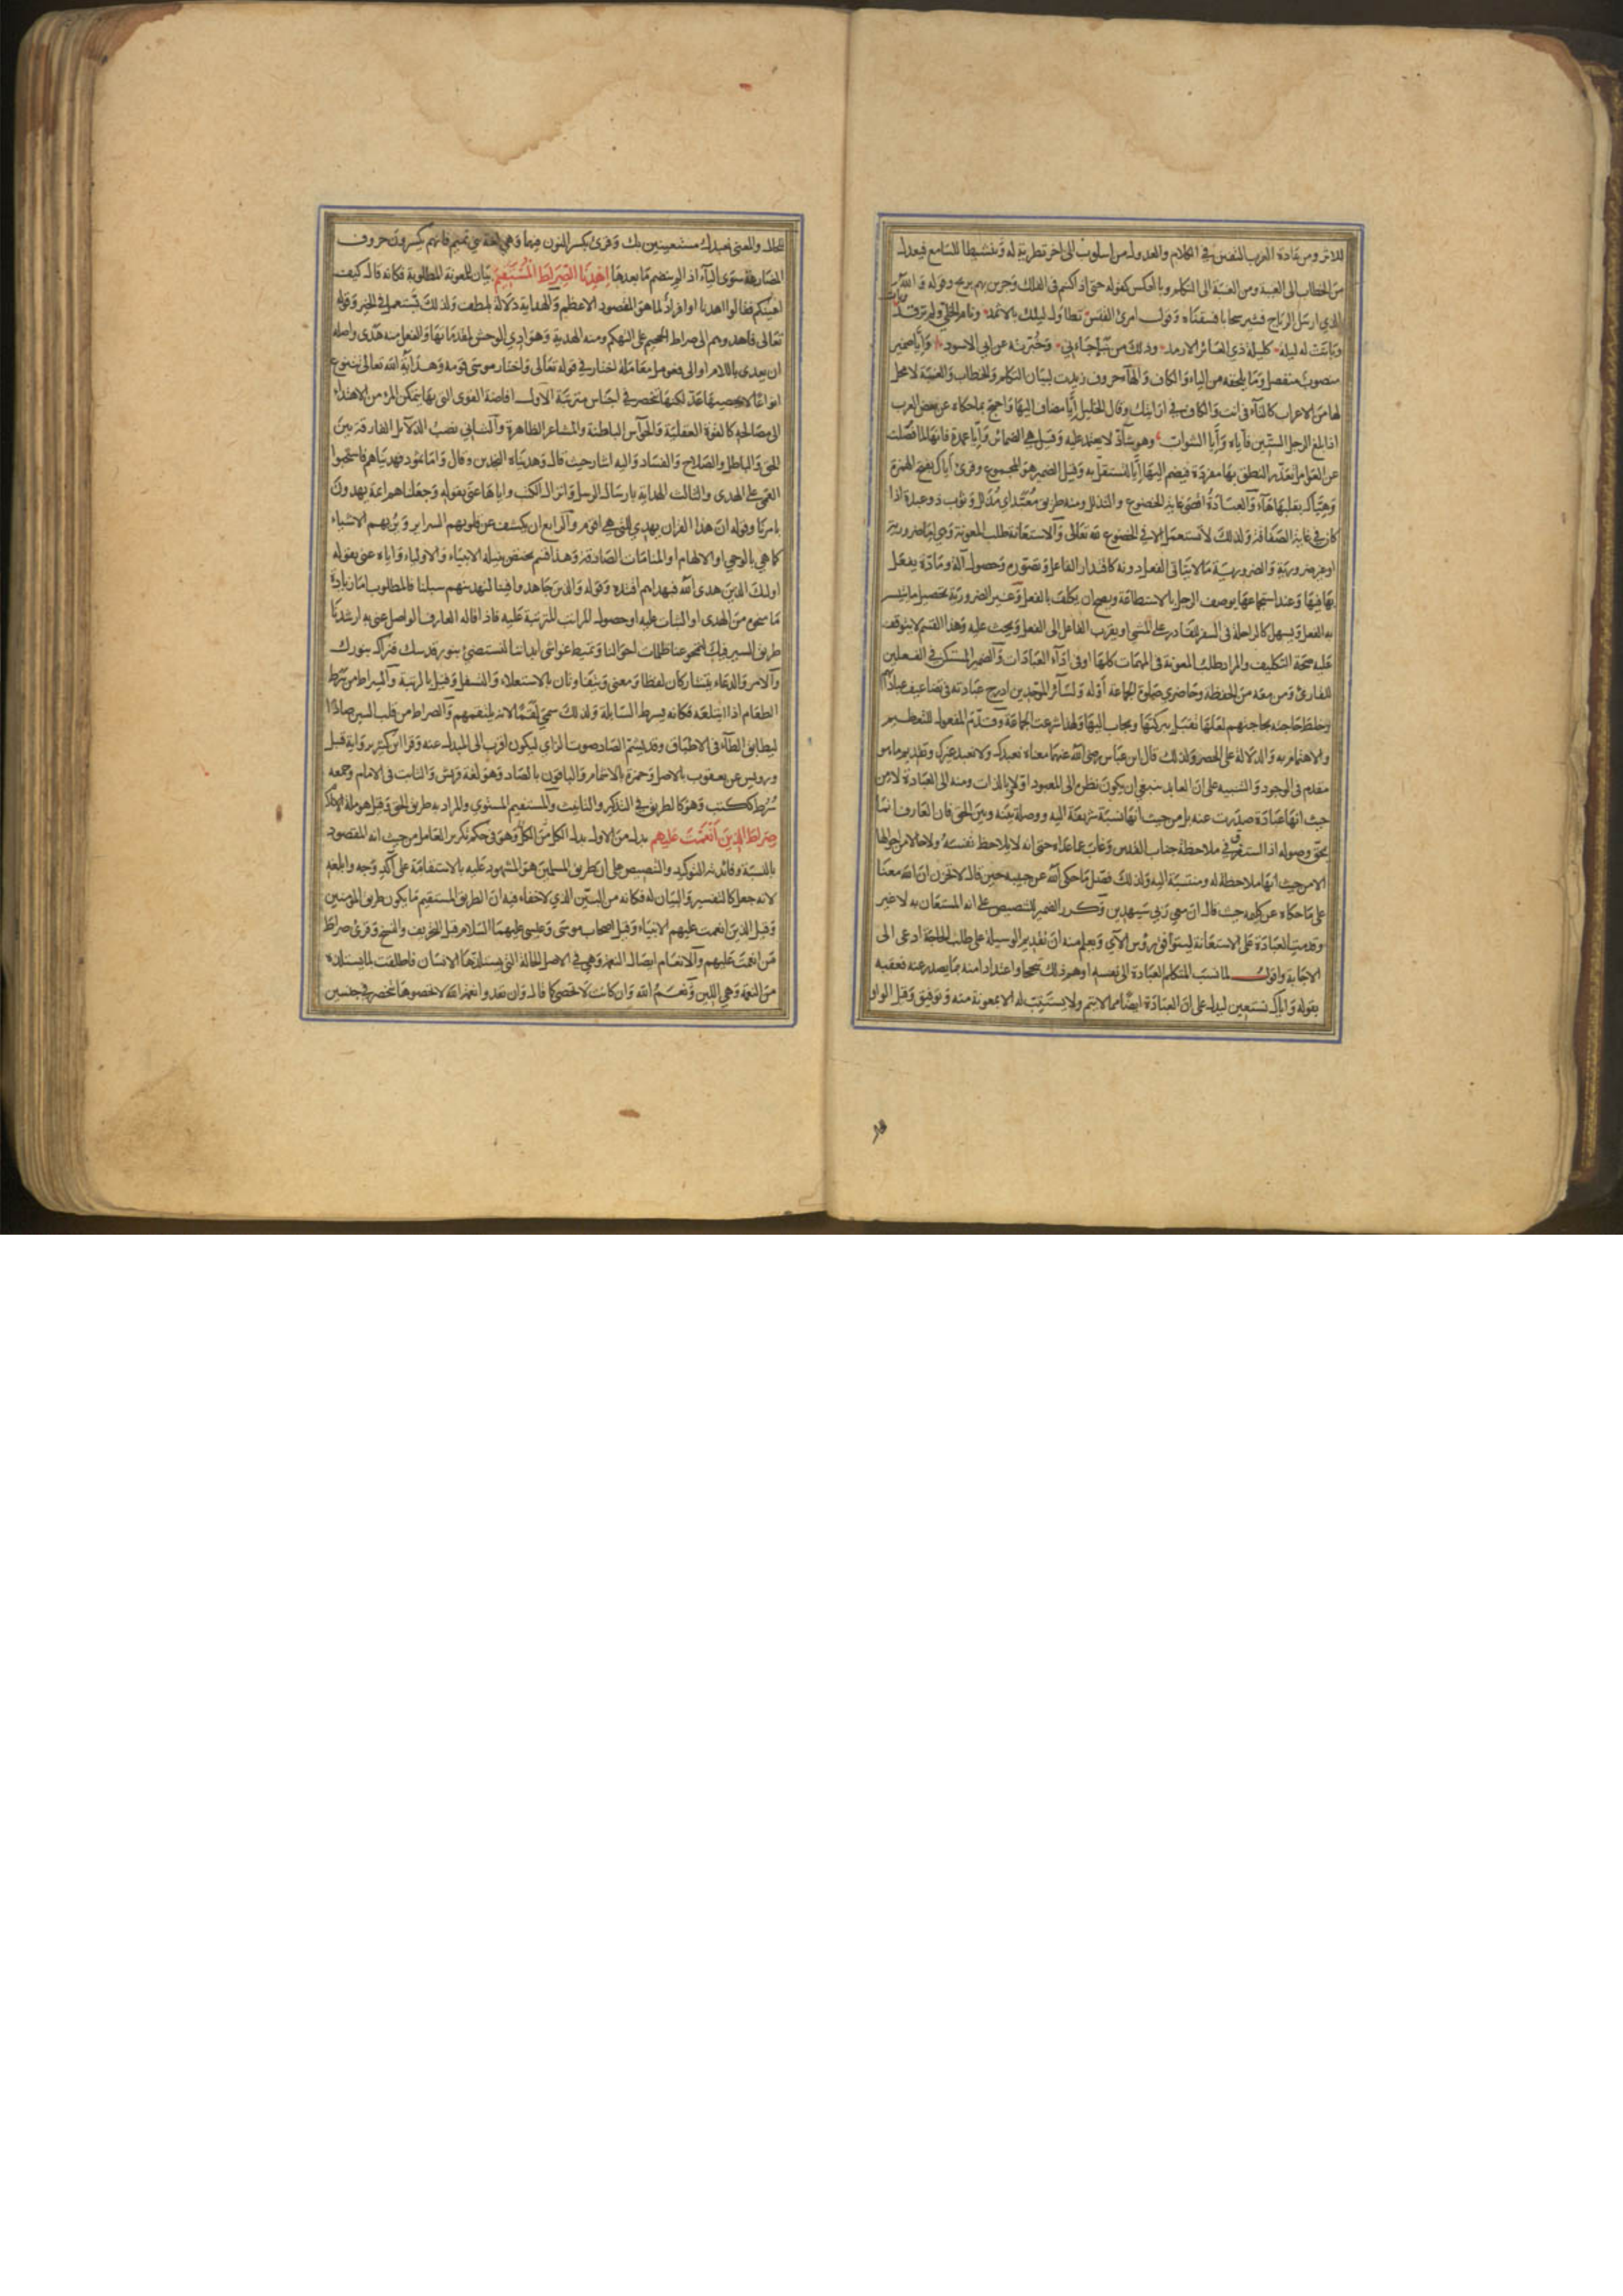 للاثر ومن عادة العرب التفنن في الكلام والعدول من اسلوب الى اخر تطرية له وتنشيطا للسامع فيعدل
من الخطاب الى الغيبة ومن الغيبة الى التكلم وبالعكس كقوله حتى اذا كنتم في الفلك وجرين بهم بريح وقوله والله
الذي ارسل الرياح فتثير سحابا فسقناه وقول امرئ القيس تطاول ليلك بالاثمد ونام الخلي ولم ترقد
وباتت له ليلة كليلة ذي العائر الارمد وذلك من نبإ جاءني وخبرته عن ابي الاسود وايا ضمير
منصوب منفصل وما يلحقه من الياء والكاف والهاء حروف زيدت لبيان التكلم والخطاب والغيبة لا محل
لها من الاعراب كالتاء في انت والكاف في ارايتك وقال الخليل إيا مضاف اليها واحتج بما حكاه عن بعض العرب
اذا بلغ الرجل الستين فاياه وايا الشواب وهو شاذ لا يعتمد عليه وقيل هي الضمائر وايا عمدة فانها لما فصلت
عن العوامل تعذر النطق بها مفردة فيضم اليها إيا لتستقل به وقيل الضمير هو المجموع وقرئ أياك بفتح الهمزة
وهياك بقلبها هاء والعبادة اقصى غاية الخضوع والتذلل ومنه طريق معبد اي مذلل وثوب ذو عبدة اذا
كان في غاية الصفاقة ولذلك لا تستعمل الا في الخضوع لله تعالى والاستعانة طلب المعونة وهي اما ضرورية
او غير ضرورية والضرورية ما لا يتاتى الفعل دونه كاقتدار الفاعل وتصوره وحصول آلة ومادة يفعل
بها فيها وعند استجماعها يوصف الرجل بالاستطاعة ويصح ان يكلف بالفعل وغير الضرورية تحصيل ما يتيسر
به الفعل ويسهل كالراحلة في السفر للقادر على المشي او يقرب الفاعل الى الفعل ويحث عليه وهذا القسم لا يتوقف
عليه صحة التكليف والمراد طلب المعونة في المهمات كلها او في اداء العبادات والضمير المستكن في الفعلين
للقارئ ومن معه من الحفظة وحاضري صلوة الجماعة أو له ولسائر الموحدين ادرج عبادته في تضاعيف عبادتهم
وخلط حاجته بحاجتهم لعلها تقبل ببركتها ويجاب اليها ولهذا شرعت الجماعة وقدم المفعول للتعظيم
والاهتمام به والدلالة على الحصر ولذلك قال ابن عباس رضي الله عنهما معناه نعبدك ولا نعبد غيرك وتقديم ما هو
مقدم في الوجود والتنبيه على ان العابد ينبغي ان يكون نظره الى المعبود اولا وبالذات ومنه الى العبادة لا من
حيث انها عبادة صدرت عنه بل من حيث انها نسبة شريفة اليه ووصلة بينه وبين الحق فان العارف انما
يحق وصوله اذا استغرق في ملاحظة جناب القدس وغاب عما عداه حتى انه لا يلاحظ نفسه ولا حالا من احوالها
الا من حيث انها ملاحظة له ومنتسبة اليه ولذلك فضل ما حكى الله عن حبيبه حين قال لا تحزن ان الله معنا
على ما حكاه عن كليمه حيث قال ان معي ربي سيهدين وكرر الضمير للتنصيص على انه المستعان به لا غير
وقدمت العبادة على الاستعانة ليتوافق رؤس الآي ويعلم منه ان تقديم الوسيلة على طلب الحاجة ادعى الى
الاجابة واقول لما نسب المتكلم العبادة الى نفسه اوهم ذلك تبجحا واعتدادا منه بما يصدر عنه فعقبه
بقوله واياك نستعين ليدل على ان العبادة ايضا مما لا يتم ولا يستتب له الا بمعونة منه وتوفيق وقيل الواو
للحال والمعنى نعبدك مستعينين بك وقرئ بكسر النون فيهما وهي لغة بني تميم فانهم يكسرون حروف
المضارعة سوى الياء اذا لم ينضم ما بعدها اهدنا الصراط المستقيم بيان للمعونة المطلوبة فكانه قال كيف
اعينكم فقالوا اهدنا او افراد لما هو المقصود الاعظم والهداية دلالة بلطف ولذلك تستعمل في الخير وقوله
تعالى فاهدوهم الى صراط الجحيم على التهكم ومنه الهدية وهوادي الوحش لمقدماتها والفعل منه هدى واصله
ان يعدى باللام او الى فعومل معاملة اختار في قوله تعالى واختار موسى قومه وهداية الله تعالى تتنوع
انواعا لا يحصيها عد لكنها تنحصر في اجناس مترتبة الاول افاضة القوى التي بها يتمكن المرء من الاهتداء
الى مصالحه كالقوة العقلية والحواس الباطنة والمشاعر الظاهرة والثاني نصب الدلائل الفارقة بين
الحق والباطل والصلاح والفساد واليه اشار حيث قال وهديناه النجدين وقال واما ثمود فهديناهم فاستحبوا
العمى على الهدى والثالث الهداية بارسال الرسل وانزال الكتب واياها عنى بقوله وجعلناهم ائمة يهدون
بامرنا وقوله ان هذا القران يهدي للتي هي اقوم والرابع ان يكشف عن قلوبهم السراير ويريهم الاشياء
كما هي بالوحي او الالهام او المنامات الصادقة وهذا قسم يختص بنيله الانبياء والاولياء واياه عنى بقوله
اولئك الذين هدى الله فبهداهم اقتده وقوله والذين جاهدوا فينا لنهدينهم سبلنا فالمطلوب اما زيادة
ما منحوه من الهدى او الثبات عليه او حصول المراتب المترتبة عليه فاذا قاله العارف الواصل عنى به ارشدنا
طريق السير فيك لتمحو عنا ظلمات احوالنا وتميط غواشي ابداننا لنستضئ بنور قدسك فنراك بنورك
والامر والدعاء يتشاركان لفظا ومعنى ويتفاوتان بالاستعلاء والتسفل وقيل بالرتبة والسراط من سرط
الطعام اذا ابتلعه فكانه يسرط السابلة ولذلك سمي لقما لانه يلتقمهم والصراط من قلب السين صادا
ليطابق الطاء في الاطباق وقد يشم الصاد صوت الزاي ليكون اقرب الى المبدل عنه وقرا ابن كثير برواية قنبل
ورويس عن يعقوب بالاصل وحمزة بالاشمام والباقون بالصاد وهو لغة قريش والثابت في الامام وجمعه
سرط ككتب وهو كالطريق في التذكير والتانيث والمستقيم المستوي والمراد به طريق الحق وقيل هو ملة الاسلام
صراط الذين انعمت عليهم بدل من الاول بدل الكل من الكل وهو في حكم تكرير العامل من حيث انه المقصود
بالنسبة وفائدته التوكيد والتنصيص على ان طريق المسلمين هو المشهود عليه بالاستقامة على آكد وجه وابلغه
لانه جعل كالتفسير والبيان له فكانه من البين الذي لا خفاء فيه ان الطريق المستقيم ما يكون طريق المؤمنين
وقيل الذين انعمت عليهم الانبياء وقيل اصحاب موسى وعيسى عليهما السلام قبل التحريف والنسخ وقرئ صراط
من انعمت عليهم والانعام ايصال النعمة وهي في الاصل الحالة التي يستلذها الانسان فاطلقت لما يستلذه
من النعمة وهي اللين ونعم الله وان كانت لا تحصى كما قال وان تعدوا نعمة الله لا تحصوها تنحصر في جنسين